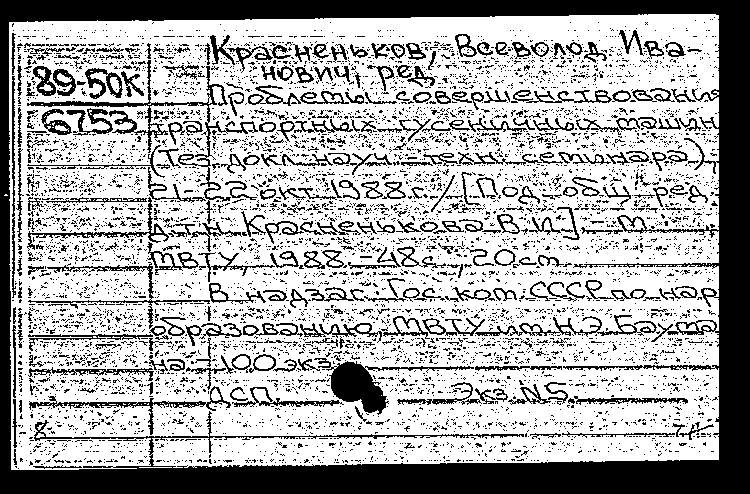 Красненьков, Всеволод Ива-
нович, ред.
89-50К
6753
Проблемы совершенствования
транспортных гусеничных машин
(Тез. докл. науч.-техн. семинара),
21-22 окт. 1988 г. / [Под общ. ред.
д.т.н. Красненькова В.И.]. - М.:
МВТУ, 1988. - 48 с.; 20 см
В надзаг.: Гос. ком. СССР по нар.
образованию, МВТУ им. Н.Э. Баума
на. - 100 экз.
ДСП. Экз. N5.